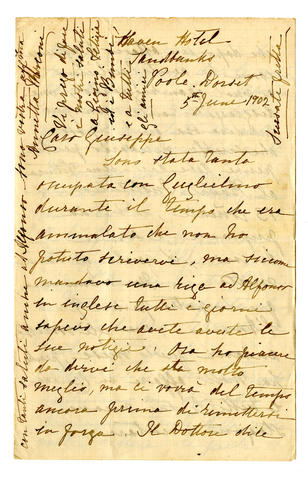 Haven Hotel
Sandbanks
Poole Dorset
5th June 1902
Caro Giuseppe
Sono stata tanto
occupata con Guglielmo
durante il tempo che era
ammalato che non ho
potuto scrivervi, ma siccome
mandavo una riga ad Alfonso
in inglese tutti i giorni
sapevo che avete avute le
sue notizie. Ora ho piacere
da dirvi che sta molto
meglio, ma ci vorrà del tempo
ancora prima di rimettersi
in forza. Il Dottore dice
Vi prego di dare
i nostri saluti
a
e a tutti
gli amici
con tanti saluti anche ad Alfonso sono vostra
Annetta Marconi